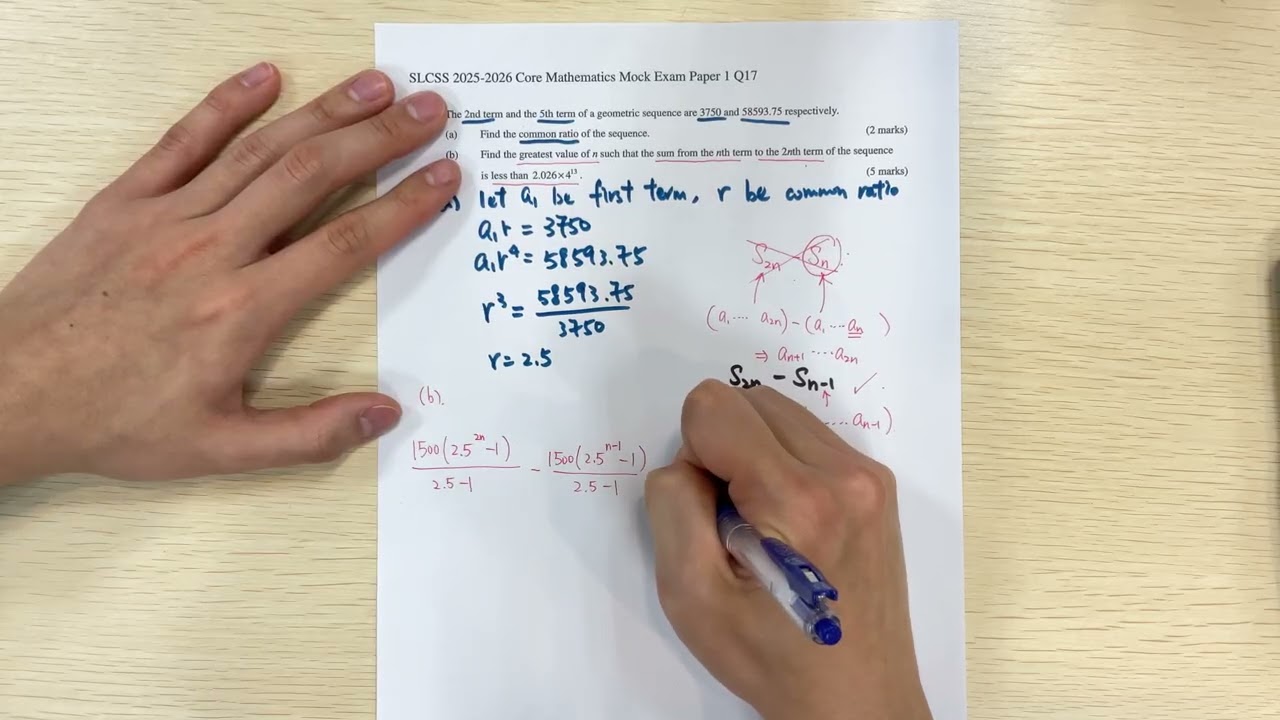 SLCSS 2025-2026 Core Mathematics Mock Exam Paper 1 Q17
The 2nd term and the 5th term of a geometric sequence are 3750 and 58593.75 respectively.
(a) Find the common ratio of the sequence. (2 marks)
(b) Find the greatest value of n such that the sum from the nth term to the 2nth term of the sequence
is less than 2.026×4¹³. (5 marks)
let a₁ be first term, r be common ratio
a₁r = 3750
a₁r⁴ = 58593.75
r³ = 58593.75 / 3750
r = 2.5
S₂ₙ - Sₙ
(a₁ .... a₂ₙ) - (a₁ ... aₙ )
⇒ aₙ₊₁ ....a₂ₙ
S₂ₙ - Sₙ₋₁ ✓
.... aₙ₋₁)
(b).
1500(2.5²ⁿ-1) / 2.5-1 - 1500(2.5ⁿ⁻¹-1) / 2.5-1